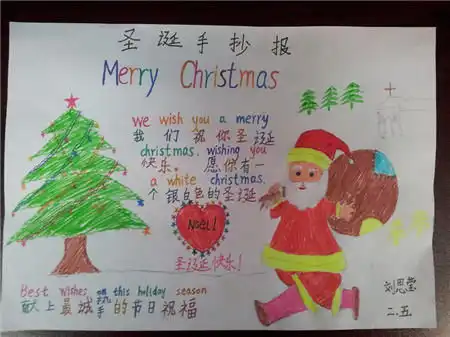 圣诞手抄报
Merry Christmas
we wish you a merry
我们祝你圣诞
christmas. wishing you
快乐。 愿你有一
a white christmas.
个银白色的圣诞
Noel!
圣诞快乐!
Best wishes on this holiday season
献上最诚 的节日祝福
刘思莹
二.五